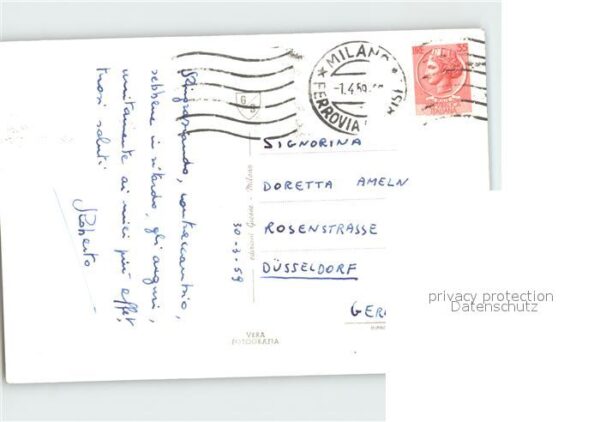 Ringraziando, contraccambio,
sebbene in ritardo, gli auguri,
unitamente ai miei più affet_
tuosi saluti
Roberto
30-3-59
edizioni Giusse - Milano
VERA
FOTOGRAFIA
MILANO
FERROVIA
-1.4.59
LIRE 35
SIGNORINA
DORETTA AMELN
ROSENSTRASSE
DÜSSELDORF
GER
privacy protection
Datenschutz